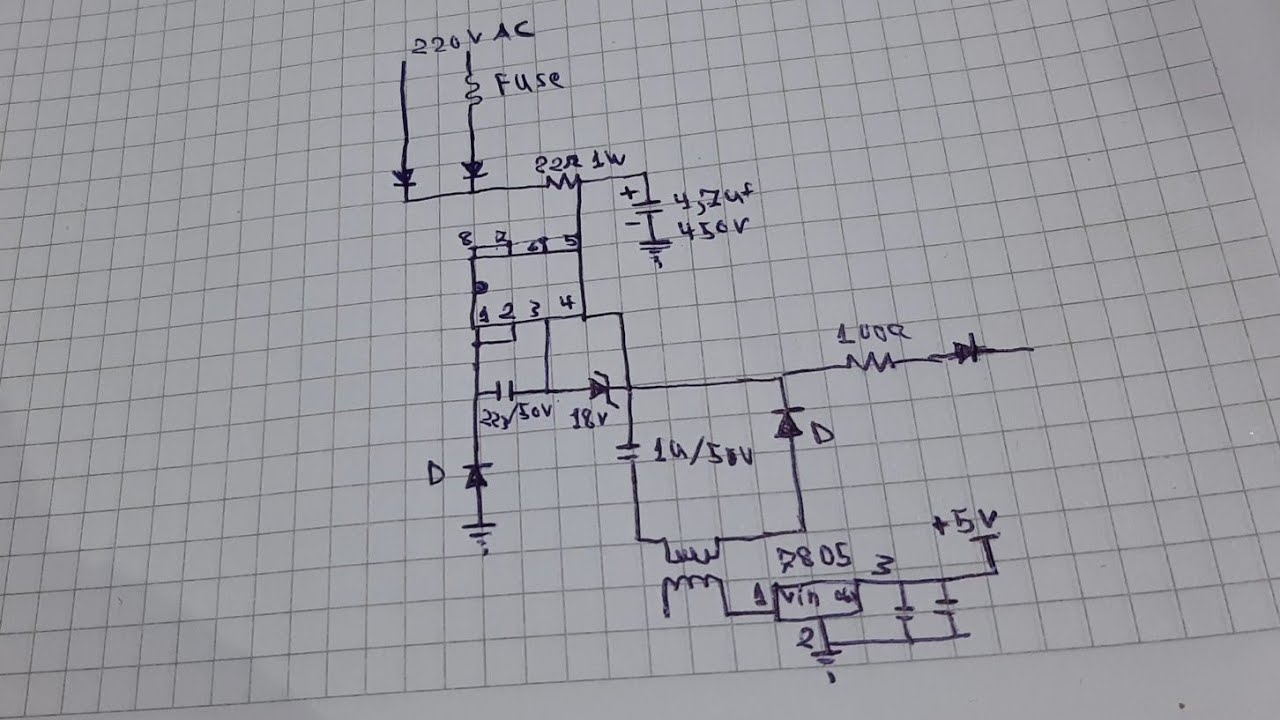 220V AC
Fuse
22Ω 1W
+ 4,7uf
- 450V
8 7 6 5
1 2 3 4
100Ω
22µ/50V
18V
D
D
1u/50V
+5V
7805
3
1 Vin
2